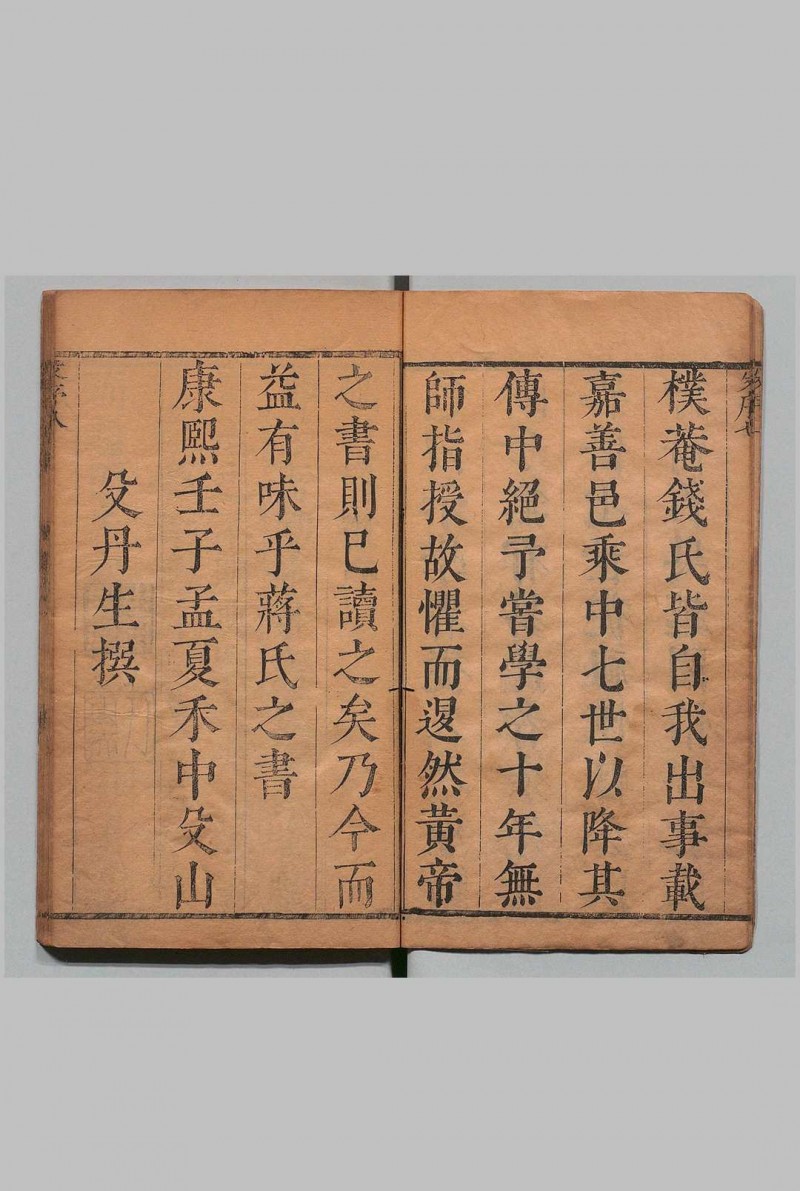 樸菴錢氏皆自我出事載
嘉善邑乘中七世以降其
傳中絕予嘗學之十年無
師指授故懼而退然黃帝
之書則已讀之矣乃今而
益有味乎蔣氏之書
康熙壬子孟夏禾中殳山
殳丹生撰